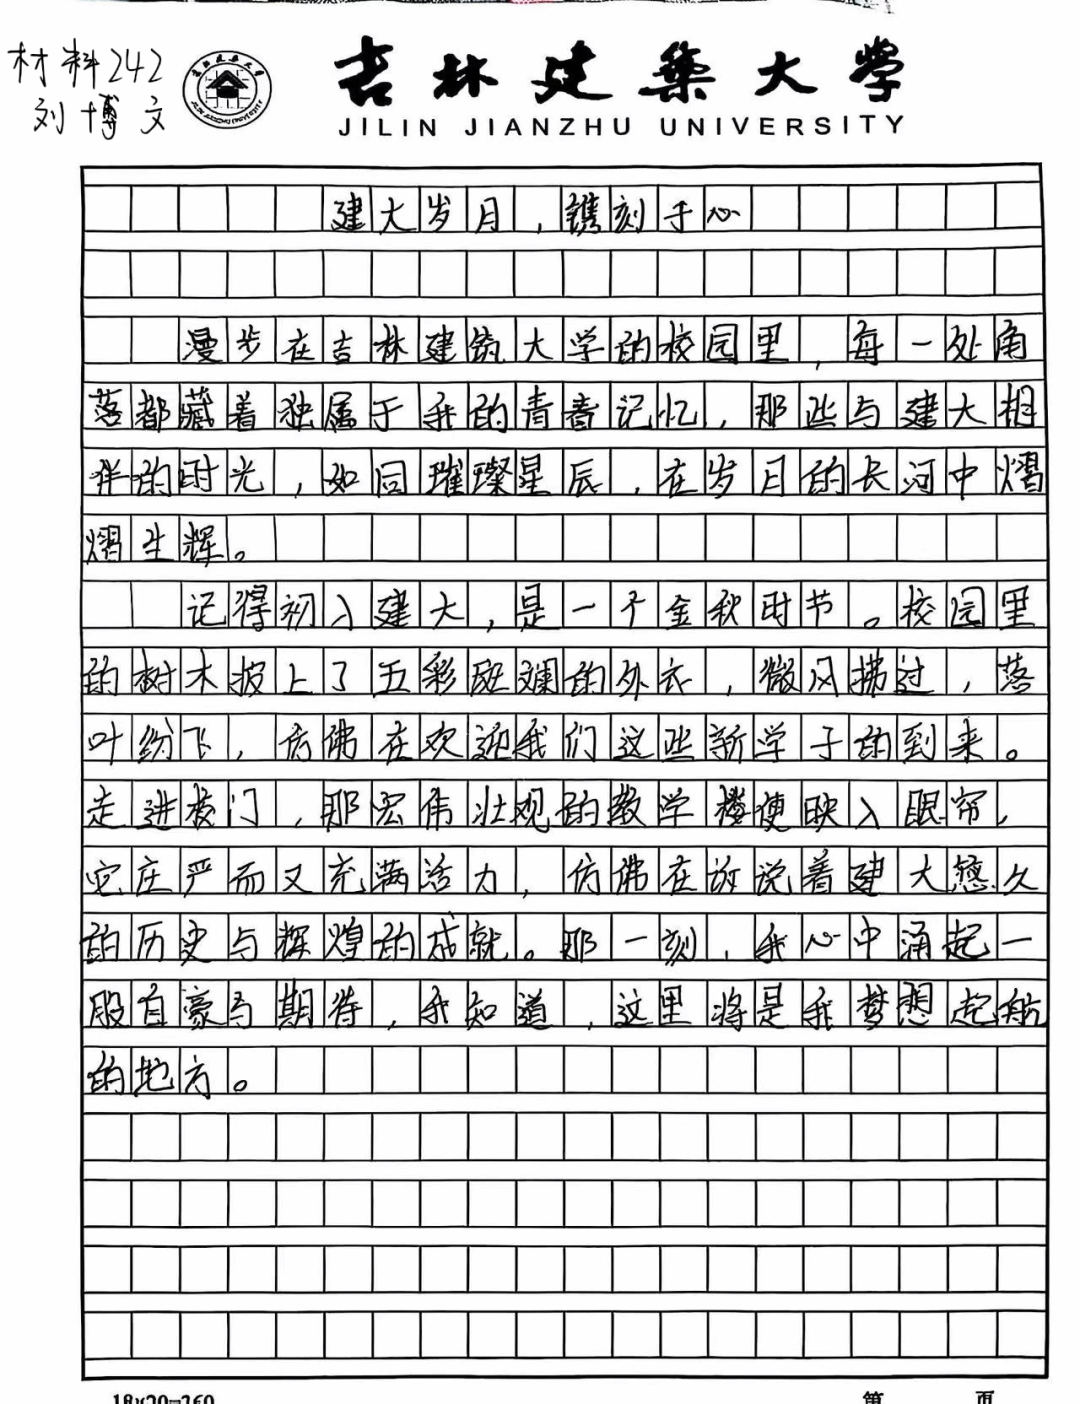 材料242
刘博文
吉林建築大学
JILIN JIANZHU UNIVERSITY
建大岁月，镌刻于心
漫步在吉林建筑大学的校园里，每一处角
落都藏着独属于我的青春记忆，那些与建大相
伴的时光，如同璀璨星辰，在岁月的长河中熠
熠生辉。
记得初入建大，是一个金秋时节。校园里
的树木披上了五彩斑斓的外衣，微风拂过，落
叶纷飞，仿佛在欢迎我们这些新学子的到来。
走进校门，那宏伟壮观的教学楼便映入眼帘，
它庄严而又充满活力，仿佛在诉说着建大悠久
的历史与辉煌的成就。那一刻，我心中涌起一
股自豪与期待，我知道，这里将是我梦想起航
的地方。
18×20=360 第 页